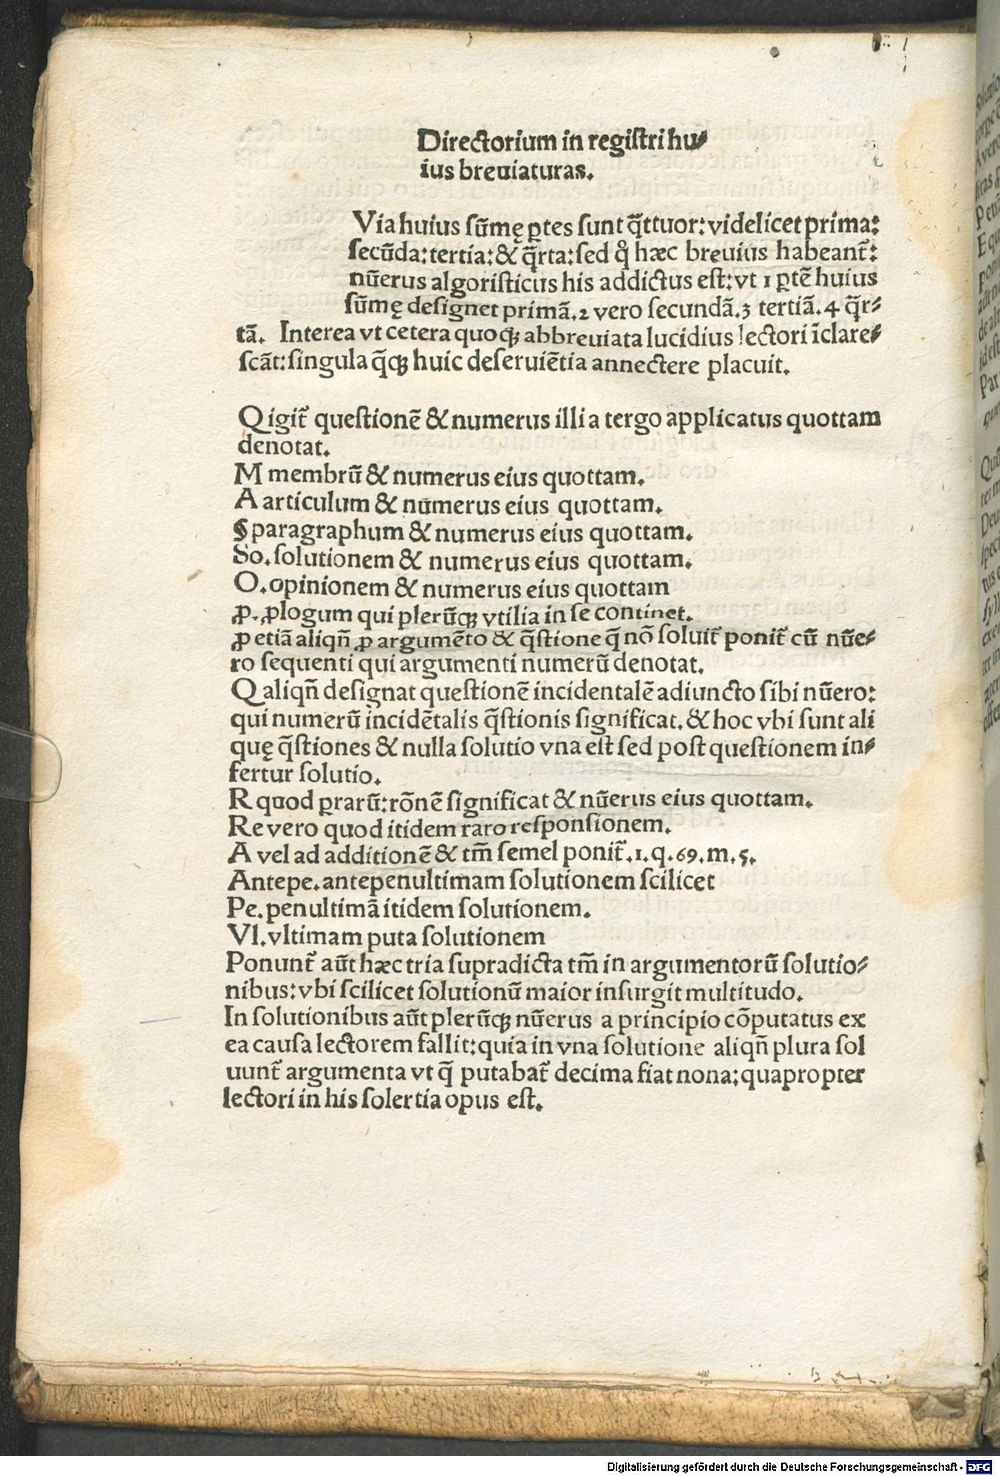 Directorium in registri hu⸗
ius breuiaturas.
Via huius sūmę ꝑtes sunt q̄ttuor: videlicet prima:
secūda: tertia: & q̄rta: sed qͥ hæc breuius habeant᷑:
nūerus algoristicus his addictus est: vt 1 ꝑtē huius
sūmę designet primā. 2 vero secundā. 3 tertiā. 4 q̄r⸗
tā. Interea vt cetera quoqꝫ abbreuiata lucidius lectori īclare⸗
scāt: singula q̄qꝫ huic deseruiētia annectere placuit.
Q igit᷑ questionē & numerus illi a tergo applicatus quottam
denotat.
M membrū & numerus eius quottam.
A articulum & numerus eius quottam.
¶ paragraphum & numerus eius quottam.
So. solutionem & numerus eius quottam.
O. opinionem & numerus eius quottam
ꝓ. ꝓlogum qui plerūqꝫ vtilia in se continet.
ꝓ etiā aliqn̄ ꝓ argumēto & q̄stione q̄ nō soluit᷑ ponit᷑ cū nūe⸗
ro sequenti qui argumenti numerū denotat.
Q aliqn̄ designat questionē incidentalē adiuncto sibi nūero:
qui numerū incidētalis q̄stionis significat. & hoc vbi sunt ali
quę q̄stiones & nulla solutio vna est sed post questionem in⸗
fertur solutio.
R quod ꝑrarū: rōnē significat & nūerus eius quottam.
Re vero quod itidem raro responsionem.
A vel ad additionē & tm̄ semel ponit᷑. 1. q. 69. m. 5.
Antepe. antepenultimam solutionem scilicet
Pe. penultimā itidem solutionem.
Vl. vltimam puta solutionem
Ponunt᷑ aūt hæc tria supradicta tm̄ in argumentorū solutio⸗
nibus: vbi scilicet solutionū maior insurgit multitudo.
In solutionibus aūt plerūqꝫ nūerus a principio cōputatus ex
ea causa lectorem fallit: quia in vna solutione aliqn̄ plura sol
uunt᷑ argumenta vt q̄ putabat᷑ decima fiat nona: quapropter
lectori in his solertia opus est.
Digitalisierung gefördert durch die Deutsche Forschungsgemeinschaft - DFG